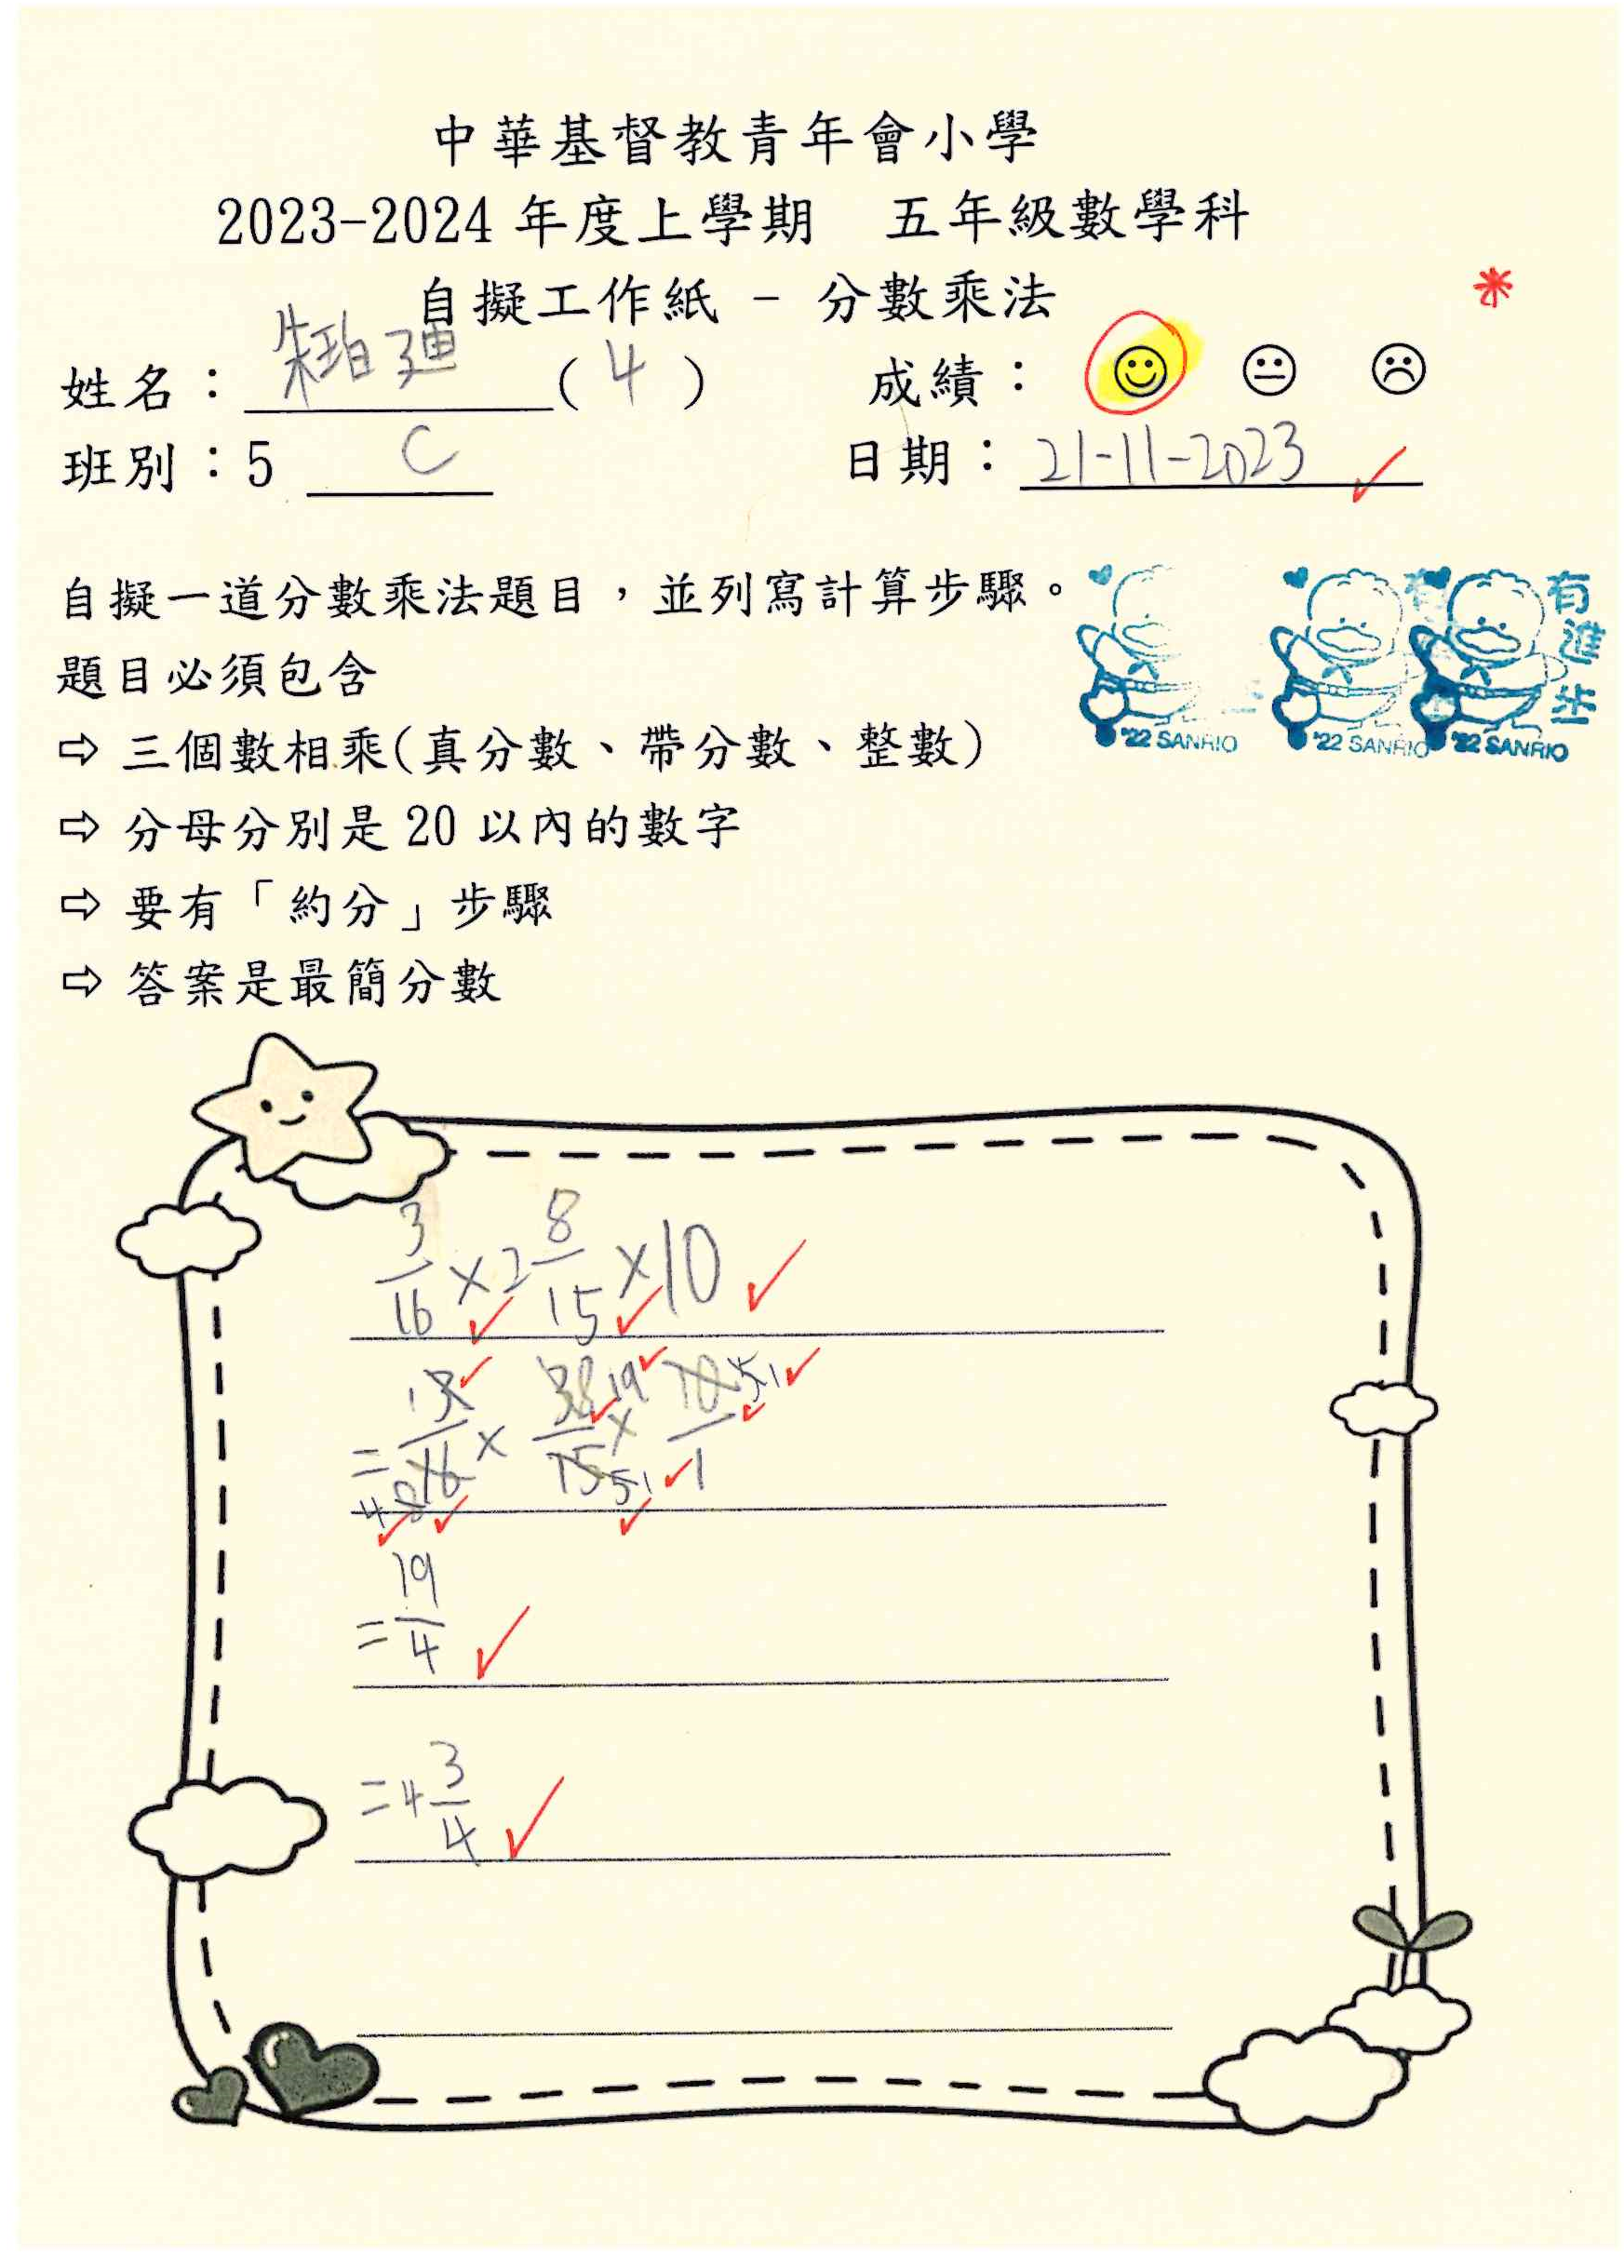 中華基督教青年會小學
2023-2024 年度上學期 五年級數學科
自擬工作紙 - 分數乘法
姓名：朱珀廸 ( 4 ) 成績：
班別：5 C 日期：21-11-2023
自擬一道分數乘法題目，並列寫計算步驟。
題目必須包含
⇨ 三個數相乘(真分數、帶分數、整數)
⇨ 分母分別是 20 以內的數字
⇨ 要有「約分」步驟
⇨ 答案是最簡分數
有進步
'22 SANRIO
'22 SANRIO
'22 SANRIO
3/16 × 2 8/15 × 10
= 3/16 × 38/15 × 10/1
1 19 5 1
4 8 5 1
= 19/4
= 4 3/4